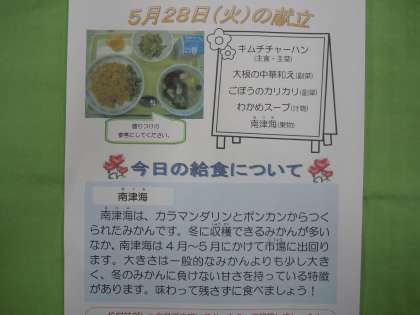 5月28日(火)の献立
キムチチャーハン
(主食・主菜)
大根の中華和え(副菜)
ごぼうのカリカリ(副菜)
わかめスープ(汁物)
南津海(果物)
盛りつけの
参考にしてください。
今日の給食について
南津海
南津海は、カラマンダリンとポンカンからつく
られたみかんです。冬に収穫できるみかんが多い
なか、南津海は4月～5月にかけて市場に出回り
ます。大きさは一般的なみかんよりも少し大き
く、冬のみかんに負けない甘さを持っている特徴
があります。味わって残さずに食べましょう!